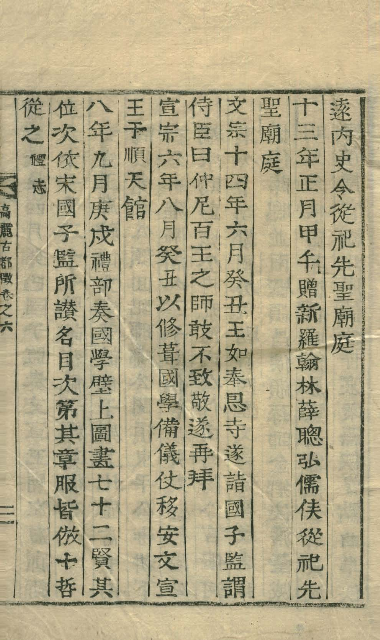 遠內史令從祀先聖廟庭
十三年正月甲午贈新羅翰林薛聰弘儒侯從祀先
聖廟庭
文宗十四年六月癸丑王如奉恩寺遂詣國子監謂
侍臣曰仲尼百王之師敢不致敬遂再拜
宣宗六年八月癸丑以修葺國學備儀仗移安文宣
王于順天館
八年九月庚戌禮部奏國學壁上圖畫七十二賢其
位次依宋國子監所讃名目次第其章服皆倣十哲
從之 禮志
高麗古都徵卷之六
二